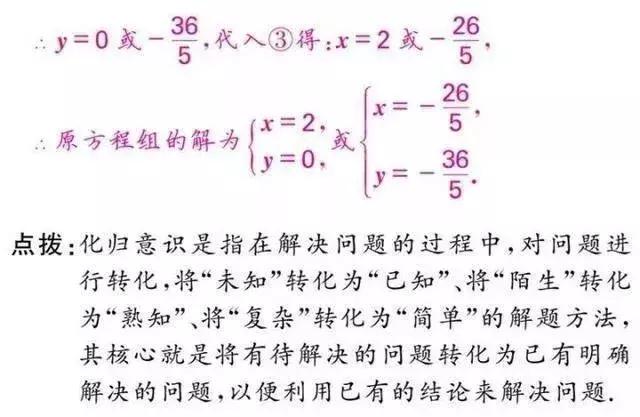 ∴ y=0 或 -36/5,代入③得:x=2 或 -26/5,
∴ 原方程组的解为 { x=2, y=0, 或 { x=-26/5, y=-36/5.
点拨:化归意识是指在解决问题的过程中,对问题进
行转化,将“未知”转化为“已知”、将“陌生”转化
为“熟知”、将“复杂”转化为“简单”的解题方法,
其核心就是将有待解决的问题转化为已有明确
解决的问题,以便利用已有的结论来解决问题.